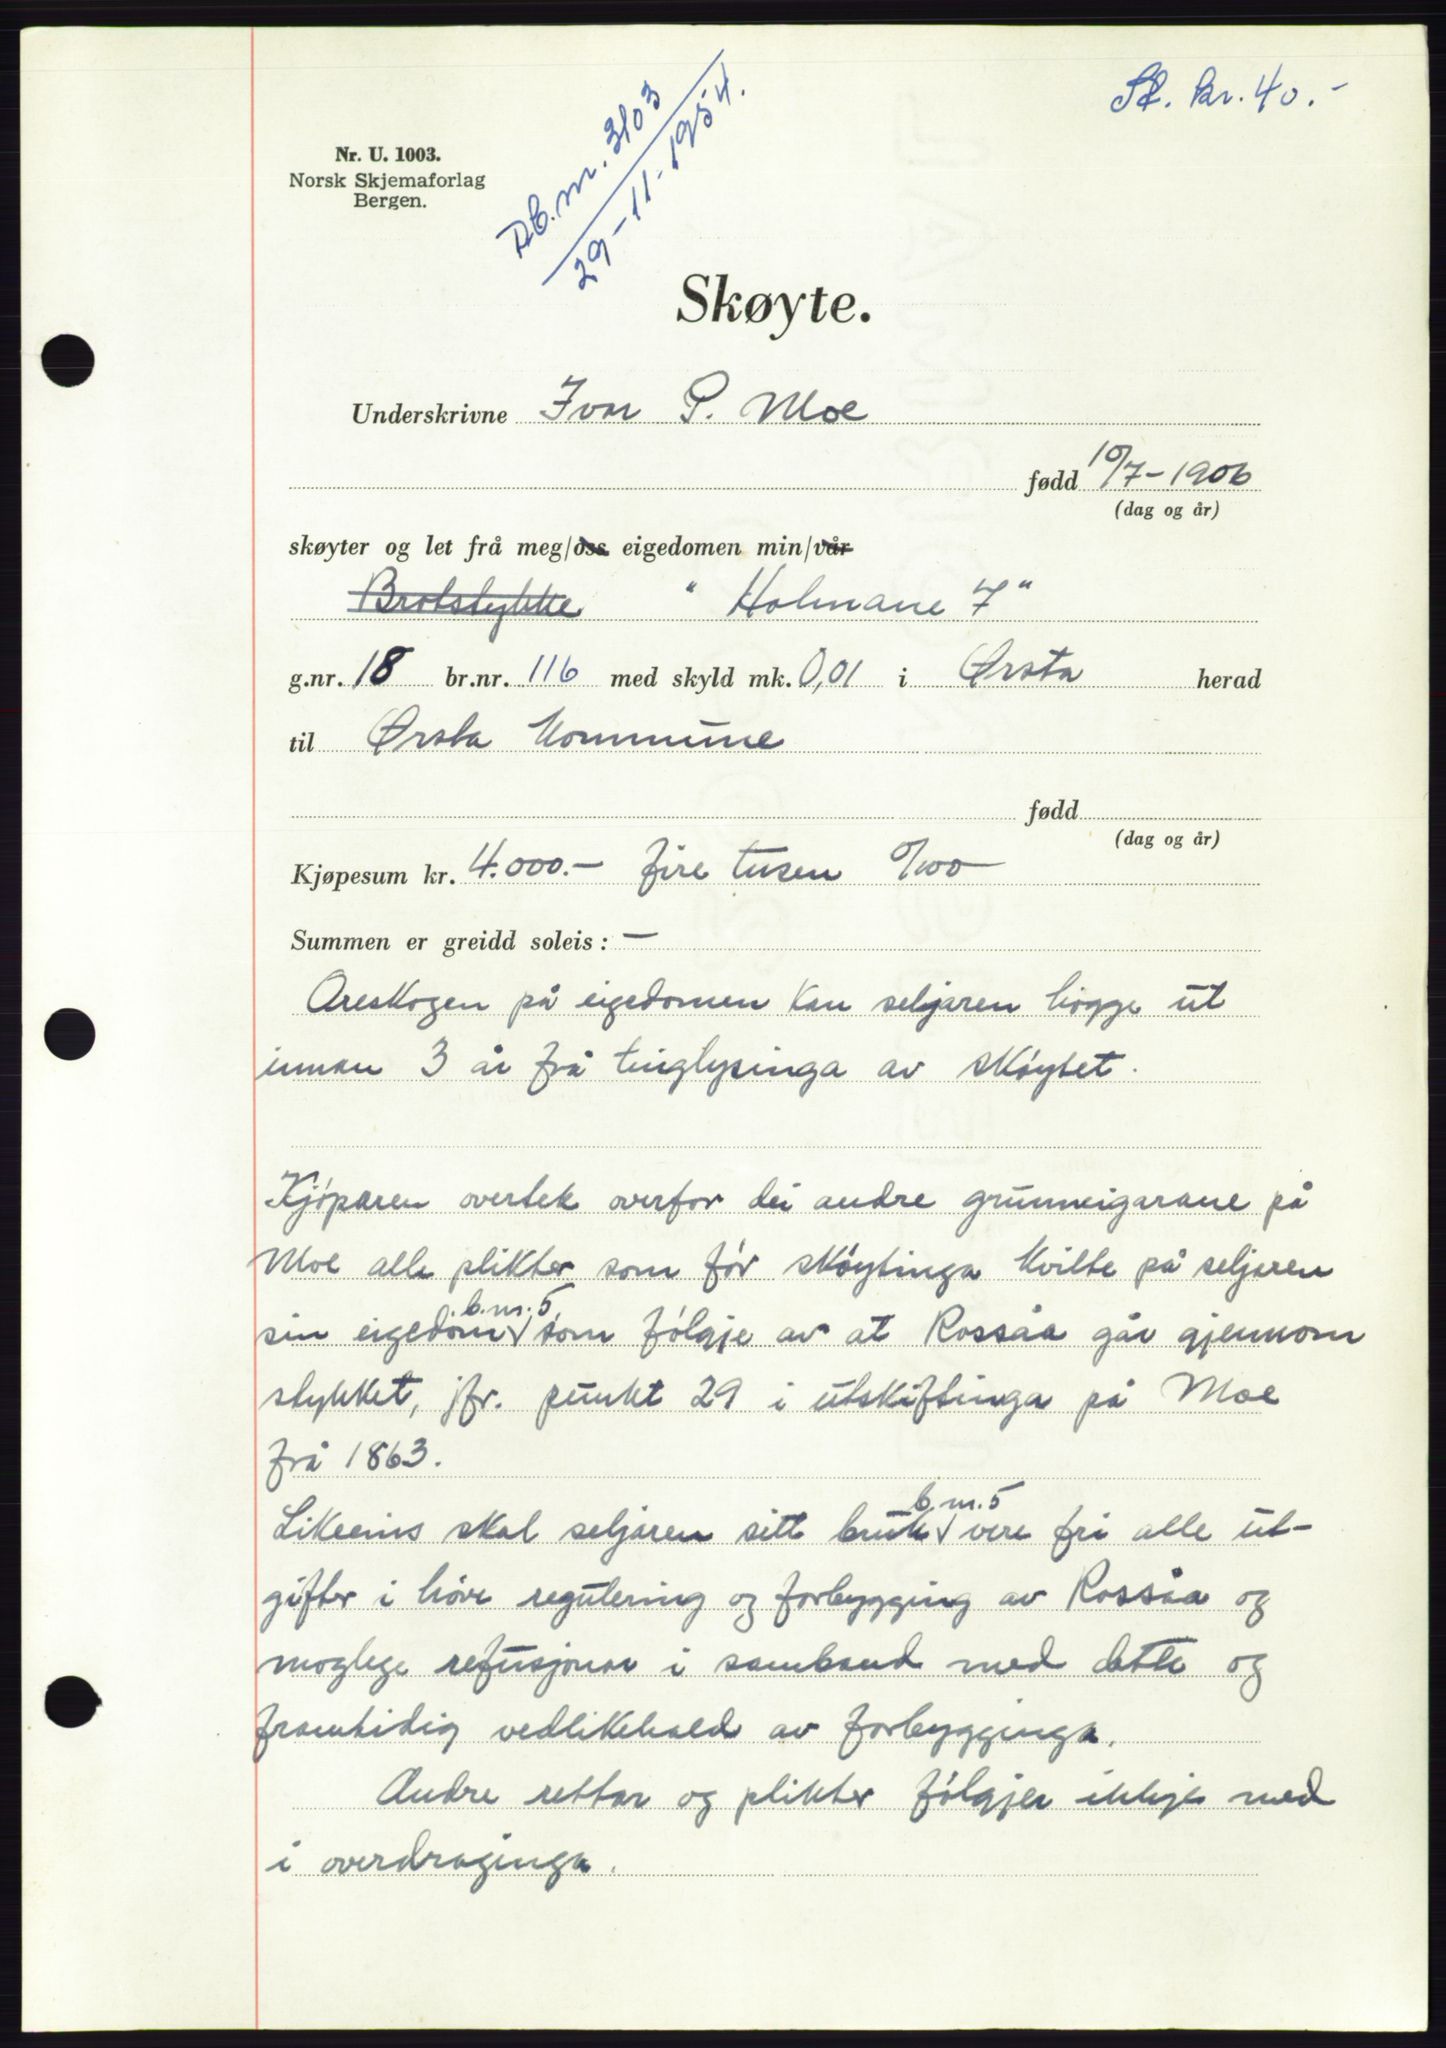 St. kr. 40.-
Db. nr. 3103
29-11-1954.
Nr. U. 1003.
Norsk Skjemaforlag
Bergen.
Skøyte.
Underskrivne Ivar P. Moe
fødd 10/7-1906
(dag og år)
skøyter og let frå meg/oss eigedomen min/vår
Brotstykke "Holmane 7"
g.nr. 18 br.nr. 116 med skyld mk. 0,01 i Ørsta herad
til Ørsta Kommune
fødd
(dag og år)
Kjøpesum kr. 4.000.- fire tusen 0/100
Summen er greidd soleis: -
Oreskogen på eigedomen kan seljaren högge ut
innan 3 år frå tinglysinga av skøytet.
Kjöparen overtek overfor dei andre grunneigarane på
Moe alle plikter som för skøytinga kvilte på seljaren
sin eigedom b.nr. 5 som fölgje av at Rossåa går gjennom
stykket, jfr. punkt 29 i utskiftinga på Moe
frå 1863.
Likeeins skal seljaren sitt bruk b.nr. 5 vere fri alle ut-
gifter i höve regulering og forbygging av Rossåa og
moglege refusjonar i samband med dette og
framtidig vedlikehald av forbygginga.
Andre rettar og plikter fölgjer ikkje med
i overdraginga.